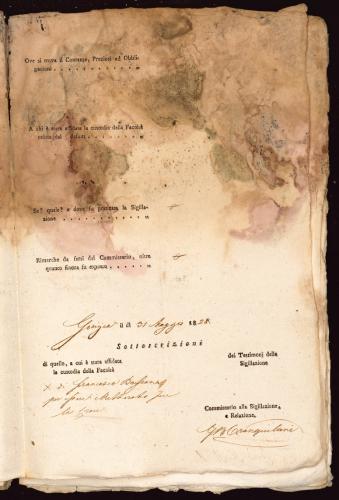 Ove si trova il Contante, Preziosi ed Obbli-
gazioni
A chi è stata affidata la custodia della Facoltà
relitta dal defunto
Se? quale? e dove fu praticata la Sigilla-
zione
Rimarche da farsi dal Commissario, oltre
quanto finora fu esposto
a di 31 Maggio 1828
Sottoscrizioni
di quello, a cui è stata affidata
la custodia della Facoltà
dei Testimonj della
Sigillazione
di Francesco
per
Commissario alla Sigillazione,
e Relazione.